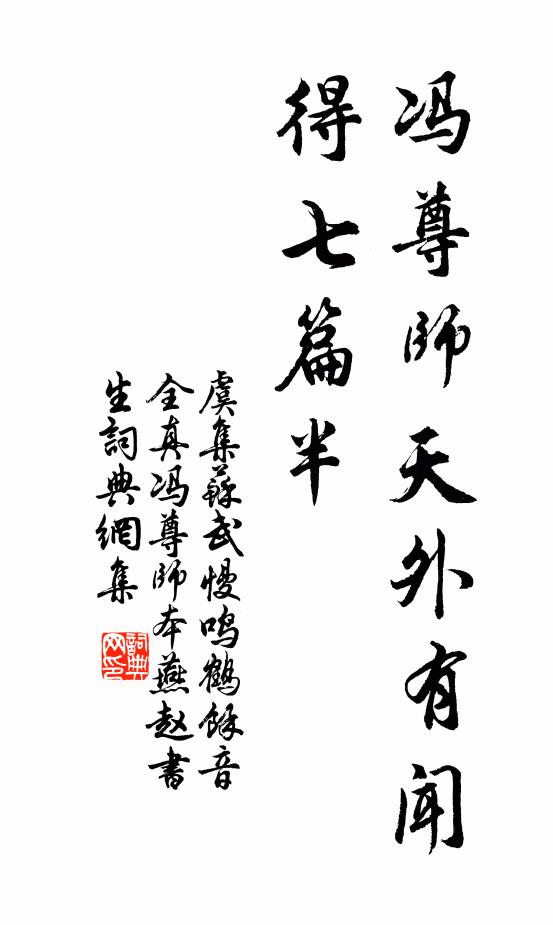 冯尊師天外有聞
得七篇半
虞集蘇武慢鸣鶴餘音
全真冯尊師本燕赵書
生詞典網集
詞典
网印